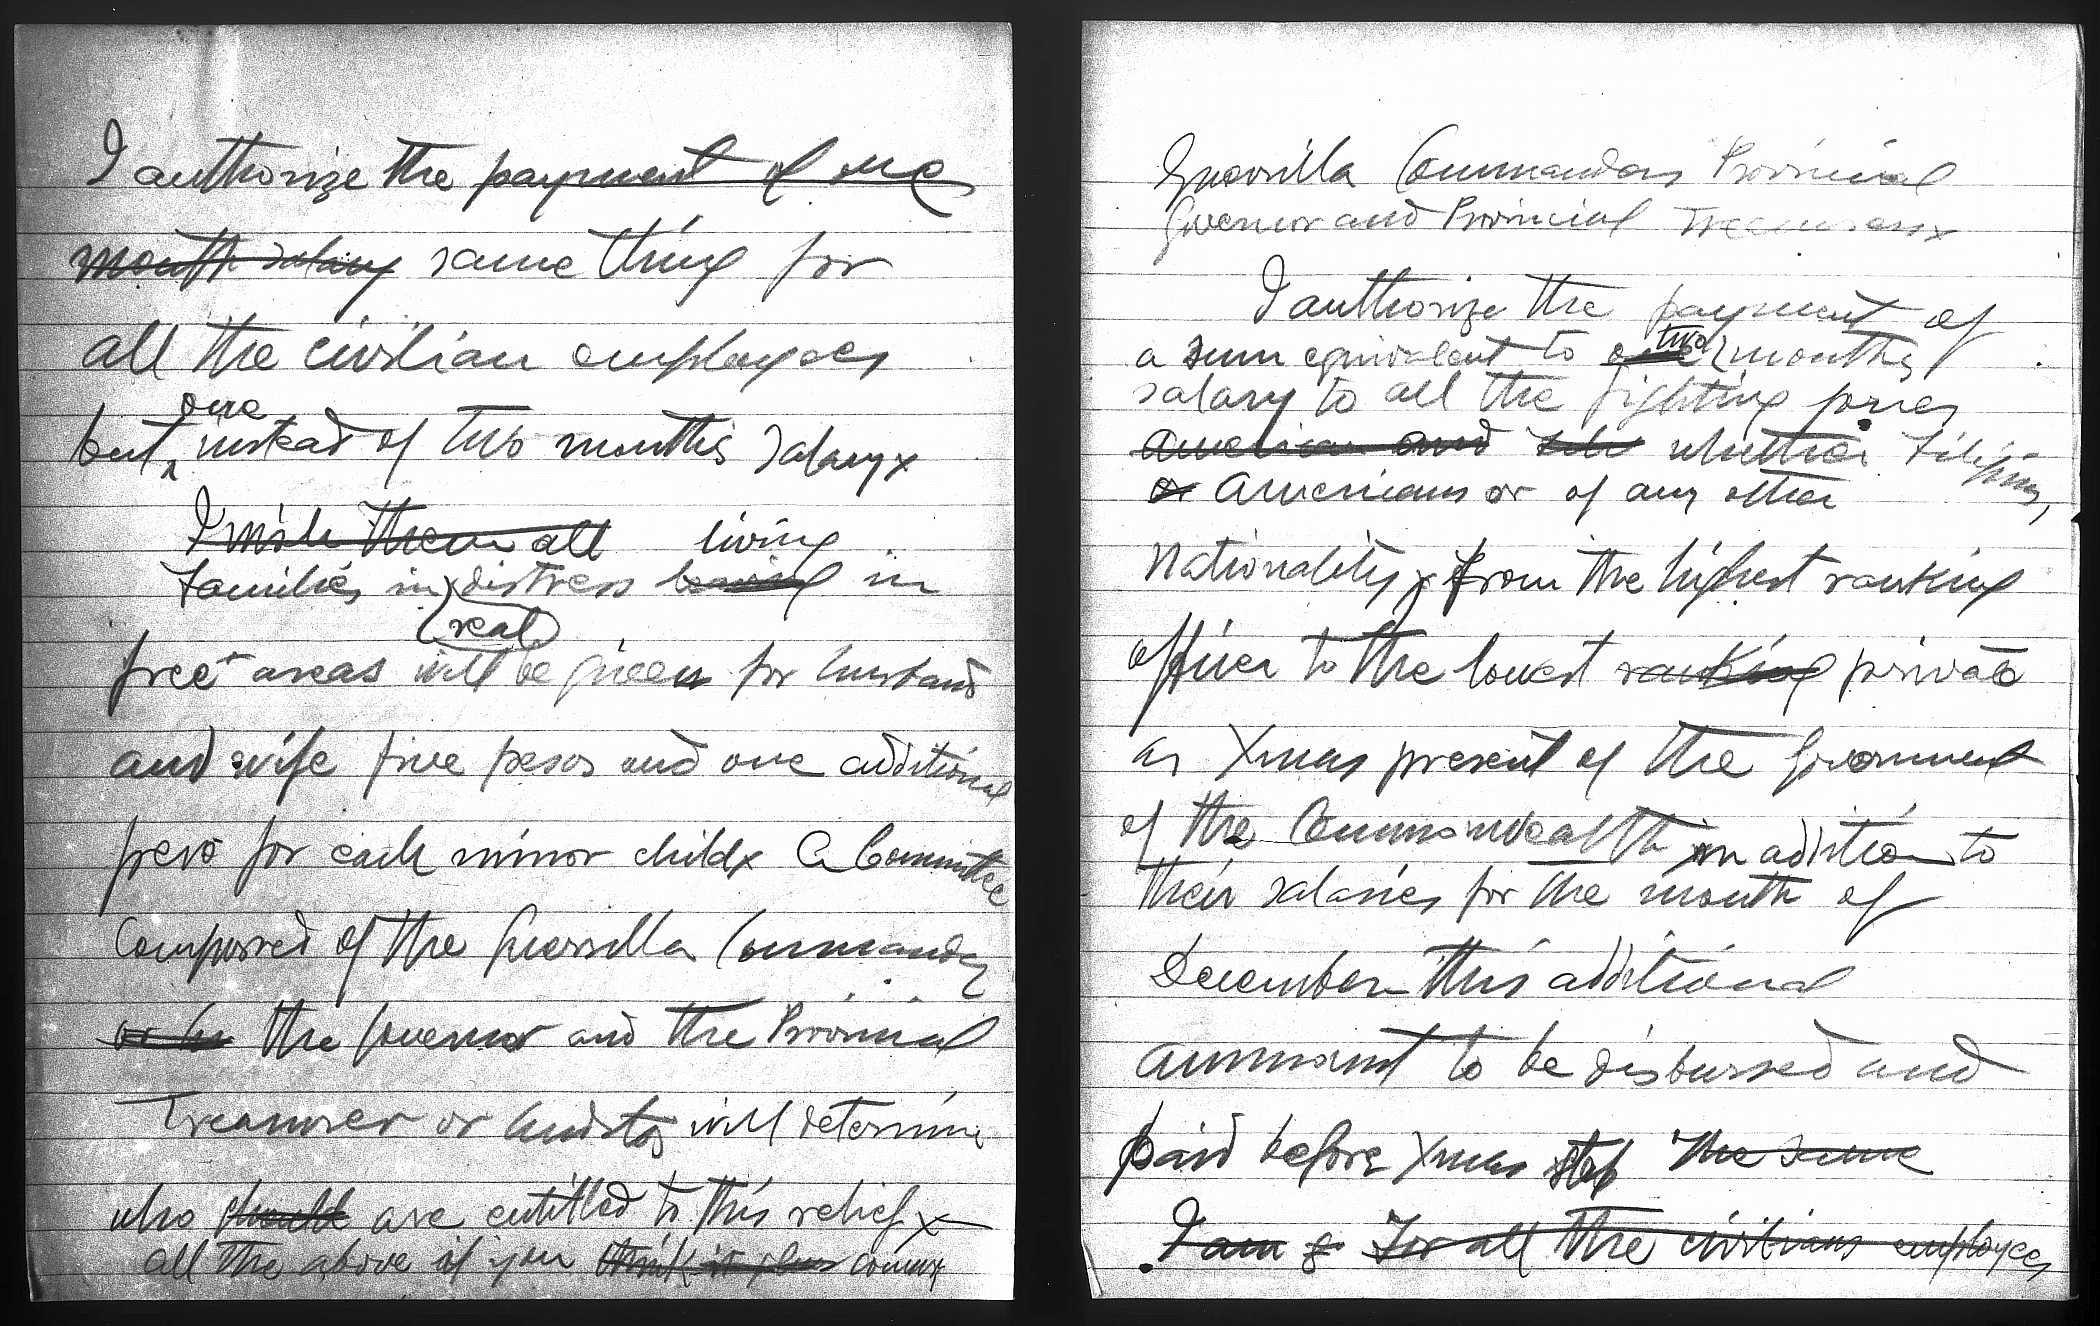 I authorize the payment of one
month salary same thing for
all the civilian employees
one
but instead of two months salary x
I wish them all living
Families in distress leaving in
real
free areas will be given for husband
and wife five pesos and one additional
peso for each minor child x A Committee
Composed of the Guerrilla Commander
or he the governor and the Provincial
Treasurer or Auditor will determine
who should are entitled to this relief x
all the above if you think it
Guerrilla Commanders Provincial
Governor and Provincial Treasurers x
I authorize the payment of
two
a sum equivalent to one months
salary to all the fighting forces
American and whether Filipinos,
or Americans or of any other
Nationality x from the highest ranking
officer to the lowest ranking private
as Xmas present of the Government
of the Commonwealth in addition to
their salaries for the month of
December this additional
ammount to be disbursed and
paid before Xmas stop The same
I am For all the civilians employees